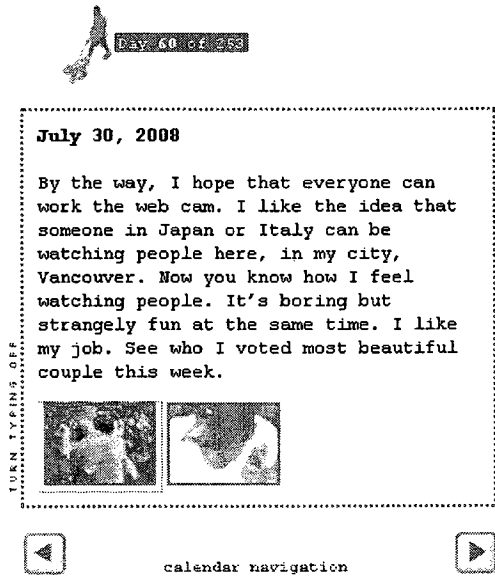 Day 60 of
July 30, 2008
By the way, I hope that everyone can
work the web cam. I like the idea that
someone in Japan or Italy can be
watching people here, in my city,
Vancouver. Now you know how I feel
watching people. It's boring but
strangely fun at the same time. I like
my job. See who I voted most beautiful
couple this week.
TURN TYPING OFF
calendar navigation